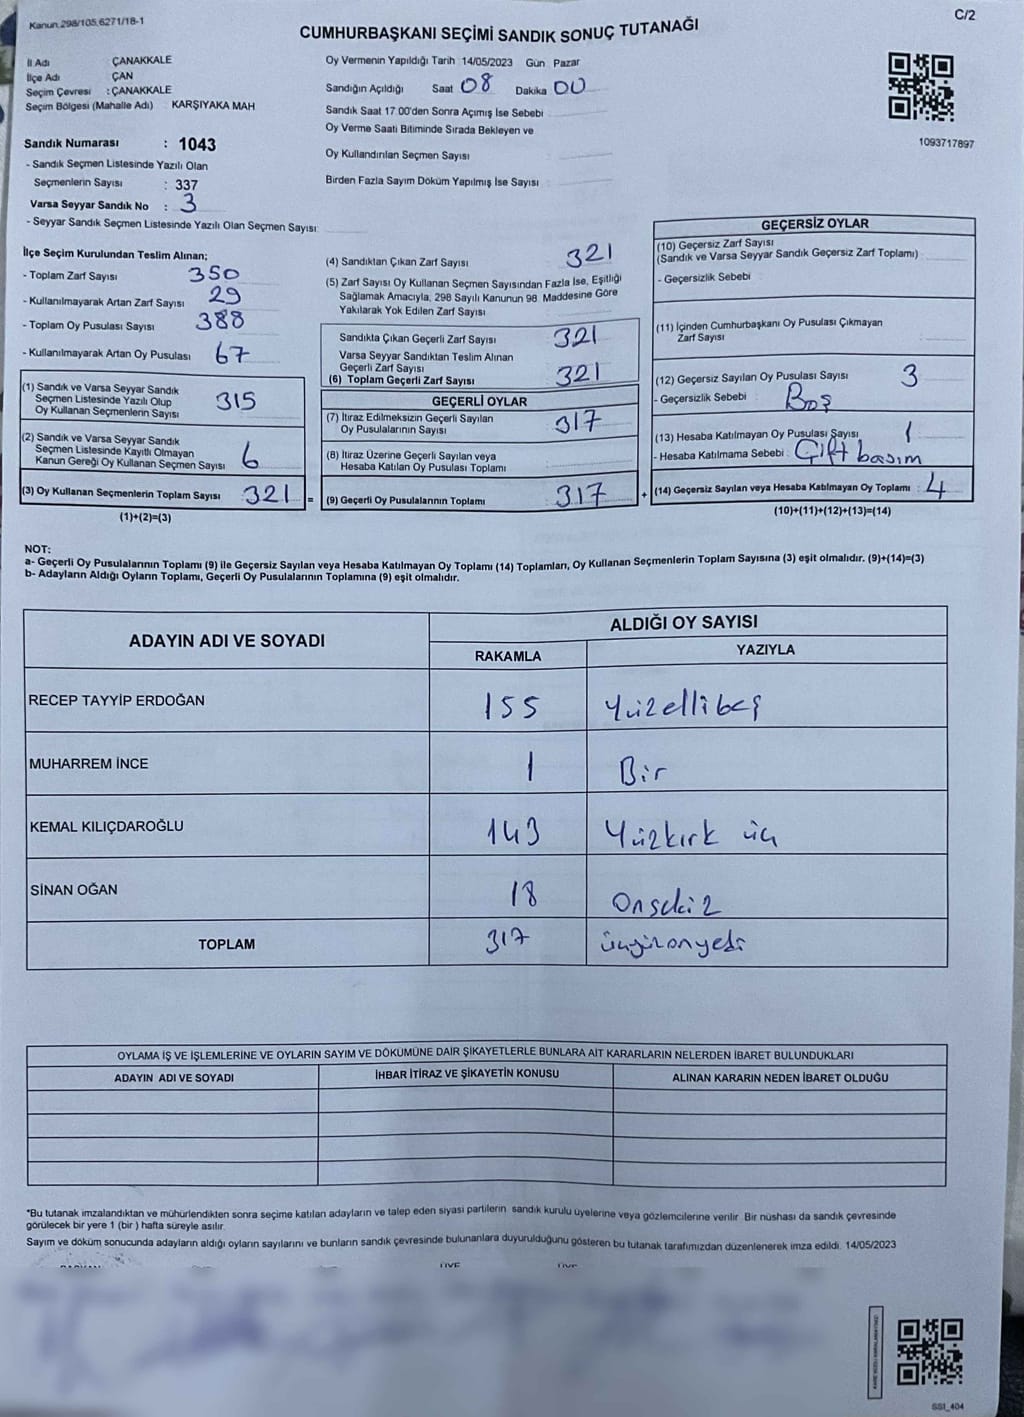 Kanun.298/105,6271/18-1
C/2
CUMHURBAŞKANI SEÇİMİ SANDIK SONUÇ TUTANAĞI
İl Adı ÇANAKKALE
İlçe Adı ÇAN
Seçim Çevresi : ÇANAKKALE
Seçim Bölgesi (Mahalle Adı) KARŞIYAKA MAH
Sandık Numarası : 1043
- Sandık Seçmen Listesinde Yazılı Olan
Seçmenlerin Sayısı : 337
Varsa Seyyar Sandık No : 3
- Seyyar Sandık Seçmen Listesinde Yazılı Olan Seçmen Sayısı:
Oy Vermenin Yapıldığı Tarih 14/05/2023 Gün Pazar
Sandığın Açıldığı Saat 08 Dakika 00
Sandık Saat 17 00'den Sonra Açımış İse Sebebi
Oy Verme Saati Bitiminde Sırada Bekleyen ve
Oy Kullandırılan Seçmen Sayısı
Birden Fazla Sayım Döküm Yapılmış İse Sayısı :
1093717897
İlçe Seçim Kurulundan Teslim Alınan;
- Toplam Zarf Sayısı 350
- Kullanılmayarak Artan Zarf Sayısı 29
- Toplam Oy Pusulası Sayısı 388
- Kullanılmayarak Artan Oy Pusulası 67
(1) Sandık ve Varsa Seyyar Sandık
Seçmen Listesinde Yazılı Olup
Oy Kullanan Seçmenlerin Sayısı 315
(2) Sandık ve Varsa Seyyar Sandık
Seçmen Listesinde Kayıtlı Olmayan
Kanun Gereği Oy Kullanan Seçmen Sayısı 6
(3) Oy Kullanan Seçmenlerin Toplam Sayısı 321 =
(1)+(2)=(3)
(4) Sandıktan Çıkan Zarf Sayısı 321
(5) Zarf Sayısı Oy Kullanan Seçmen Sayısından Fazla İse, Eşitliği
Sağlamak Amacıyla, 298 Sayılı Kanunun 98 Maddesine Göre
Yakılarak Yok Edilen Zarf Sayısı
Sandıkta Çıkan Geçerli Zarf Sayısı 321
Varsa Seyyar Sandıktan Teslim Alınan
Geçerli Zarf Sayısı
(6) Toplam Geçerli Zarf Sayısı 321
GEÇERLİ OYLAR
(7) İtiraz Edilmeksizin Geçerli Sayılan
Oy Pusulalarının Sayısı 317
(8) İtiraz Üzerine Geçerli Sayılan veya
Hesaba Katılan Oy Pusulası Toplamı
(9) Geçerli Oy Pusulalarının Toplamı 317 +
GEÇERSİZ OYLAR
(10) Geçersiz Zarf Sayısı
(Sandık ve Varsa Seyyar Sandık Geçersiz Zarf Toplamı)
- Geçersizlik Sebebi
(11) İçinden Cumhurbaşkanı Oy Pusulası Çıkmayan
Zarf Sayısı
(12) Geçersiz Sayılan Oy Pusulası Sayısı 3
- Geçersizlik Sebebi : Boş
(13) Hesaba Katılmayan Oy Pusulası Sayısı 1
- Hesaba Katılmama Sebebi : Çift basım
(14) Geçersiz Sayılan veya Hesaba Katılmayan Oy Toplamı : 4
(10)+(11)+(12)+(13)=(14)
NOT:
a- Geçerli Oy Pusulalarının Toplamı (9) ile Geçersiz Sayılan veya Hesaba Katılmayan Oy Toplamı (14) Toplamları, Oy Kullanan Seçmenlerin Toplam Sayısına (3) eşit olmalıdır. (9)+(14)=(3)
b- Adayların Aldığı Oyların Toplamı, Geçerli Oy Pusulalarının Toplamına (9) eşit olmalıdır.
ADAYIN ADI VE SOYADI
ALDIĞI OY SAYISI
RAKAMLA YAZIYLA
RECEP TAYYİP ERDOĞAN 155 Yüzellibeş
MUHARREM İNCE 1 Bir
KEMAL KILIÇDAROĞLU 143 Yüzkırk üç
SİNAN OĞAN 18 Onsekiz
TOPLAM 317 üçyüzonyedi
OYLAMA İŞ VE İŞLEMLERİNE VE OYLARIN SAYIM VE DÖKÜMÜNE DAİR ŞİKAYETLERLE BUNLARA AİT KARARLARIN NELERDEN İBARET BULUNDUKLARI
ADAYIN ADI VE SOYADI İHBAR İTİRAZ VE ŞİKAYETİN KONUSU ALINAN KARARIN NEDEN İBARET OLDUĞU
*Bu tutanak imzalandıktan ve mühürlendikten sonra seçime katılan adayların ve talep eden siyasi partilerin sandık kurulu üyelerine veya gözlemcilerine verilir Bir nüshası da sandık çevresinde
görülecek bir yere 1 (bir) hafta süreyle asılır.
Sayım ve döküm sonucunda adayların aldığı oyların sayılarını ve bunların sandık çevresinde bulunanlara duyurulduğunu gösteren bu tutanak tarafımızdan düzenlenerek imza edildi. 14/05/2023
SS1_404